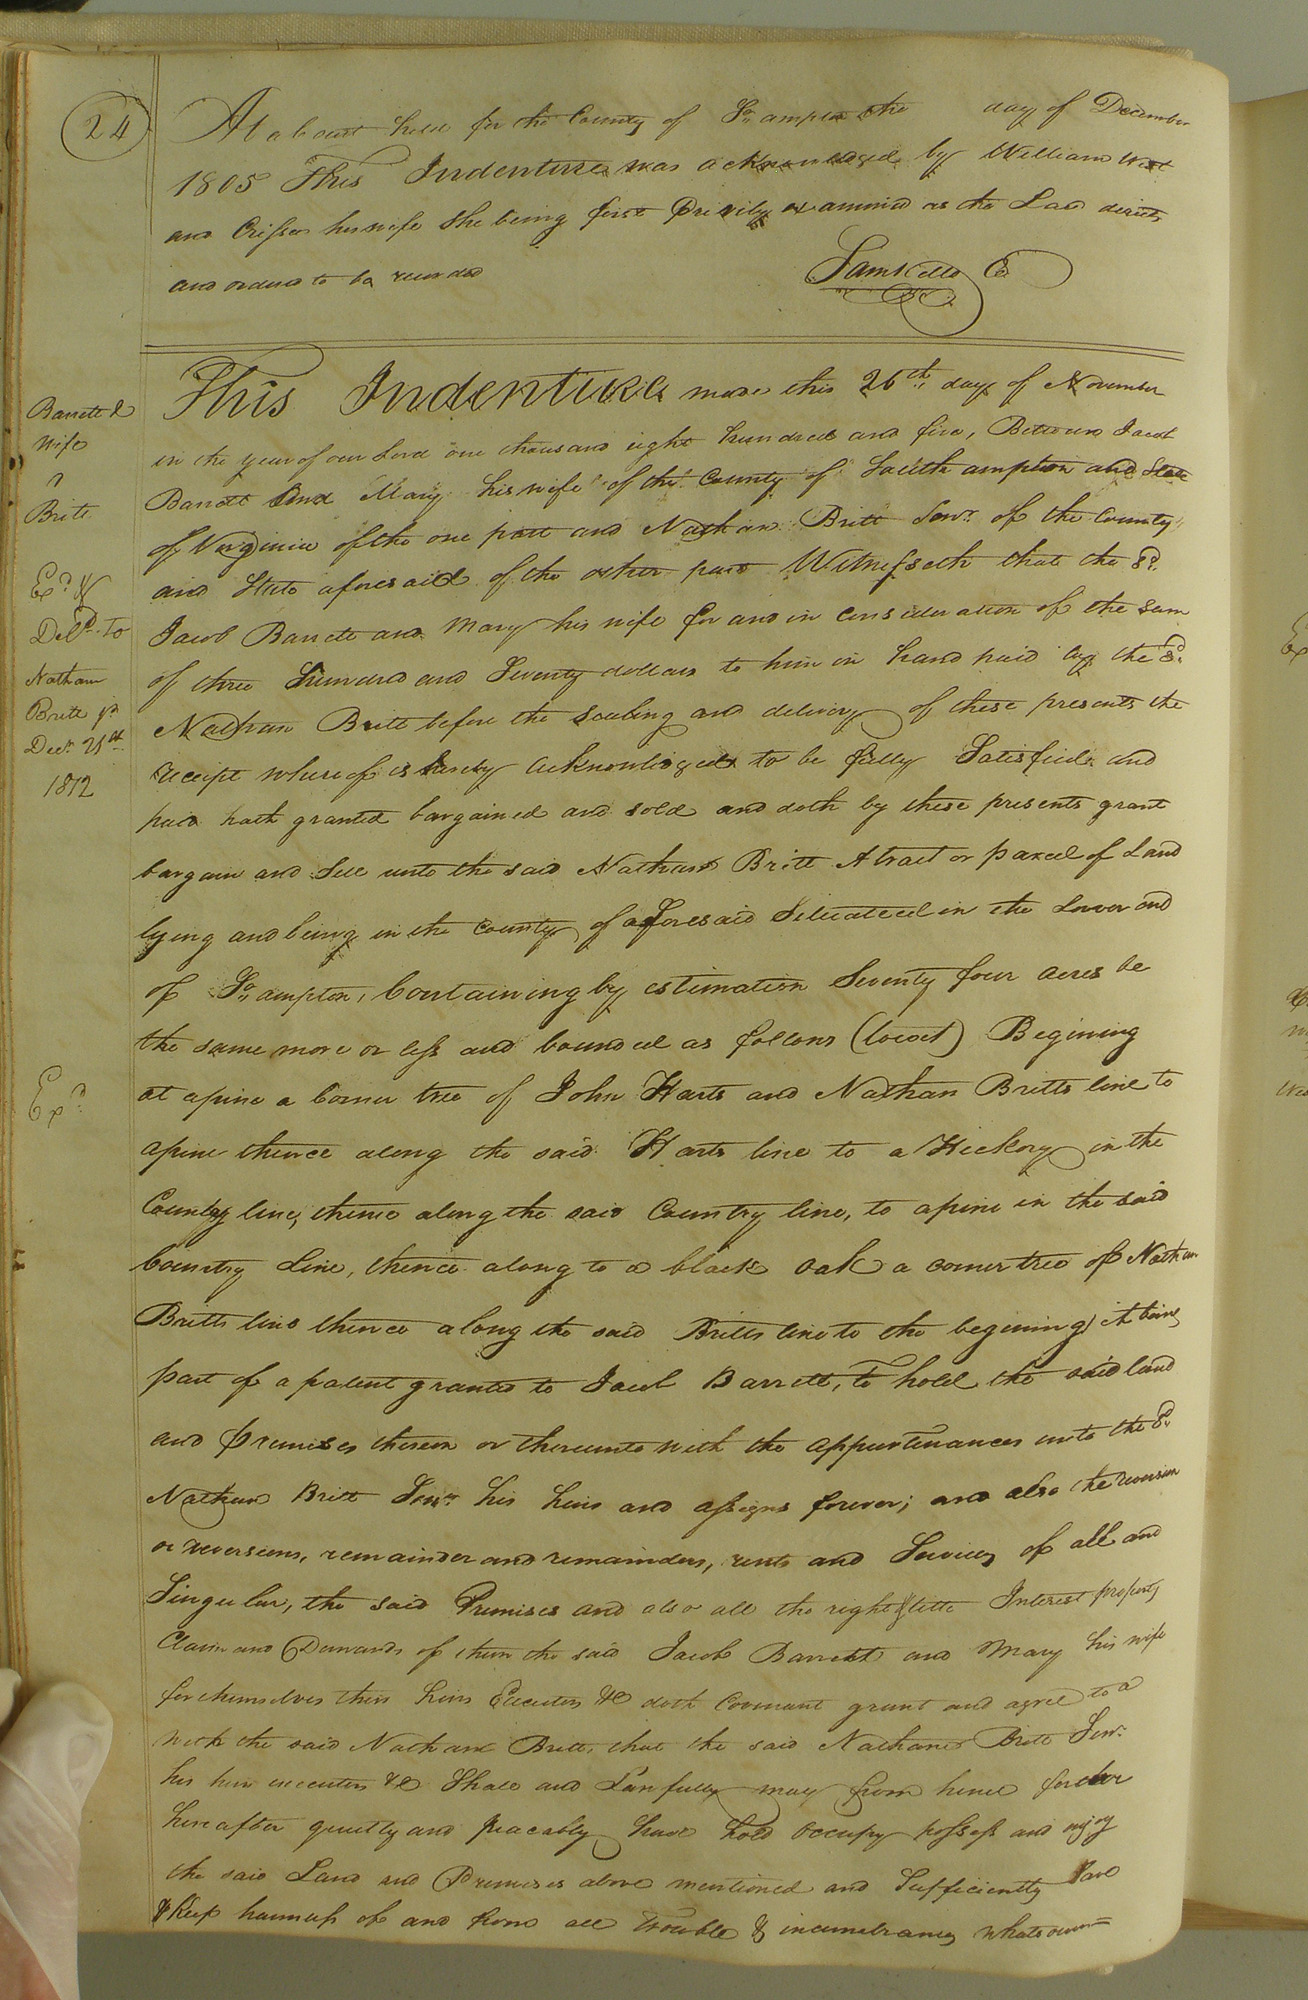 24
At a Court held for the County of So,,ampton the day of December
1805 This Indenture was acknowledged by William West
and his wife She being first Privily examined as the Law directs
and ordered to be recorded
Saml Kello Co
This Indenture made this 26th,, day of November
in the year of our Lord one thousand eight hundred and five, Between Jacob
Barrett And Mary his wife of the County of Southampton and State
of Virginia of the one part and Nathan Britt Senr. of the County
and State aforesaid of the other part Witnesseth that the sd.
Jacob Barrett and Mary his wife for and in consideration of the sum
of three Hundred and Seventy dollars to him in hand paid by the sd.
Nathan Britt before the Sealing and delivery of these presents the
receipt whereof is hereby Acknowledged to be fully Satisfied and
paid hath granted bargained and sold and doth by these presents grant
bargain and Sell unto the said Nathan Britt A tract or parcel of Land
lying and being in the County of aforesaid Situated in the Lower end
of So,,ampton, Containing by estimation Seventy four acres be
the same more or less and bounded as follows (towit) Begining
at a pine a Corner tree of John Harts and Nathan Britts line to
a pine thence along the said Harts line to a Hickory in the
Country line, thence along the said Country line, to a pine in the said
Country Line, thence along to a black oak a corner tree of Nathan
Britts line thence along the said Britts line to the begining, it being
part of a patent granted to Jacob Barrett, to hold the said land
and premises therein or thereunto with the appurtenances unto the sd.
Nathan Britt Senr. his heirs and assigns forever; and also the reversion
or reversions, remainder and remainders, rents and Services of all and
Singular, the said Premises and also all the right & title Interest property
Claim and Demands of them the said Jacob Barrett and Mary his wife
for themselves their heirs Executors &c doth Covenant grant and agree to &
with the said Nathan Britt, that the said Nathan Britt Senr.
his heirs executors &c Shall and Lawfully may from hence forever
hereafter quietly and peacably have hold occupy possess and enjoy
the said Land and Premises above mentioned and Sufficiently Save
& Keep harmless of and from all trouble & incumbrances whatsoever
Barrett &
wife
Britt
Exd. &
Deld. to
Nathan
Britt
Decr. 21st
1812
Exd.